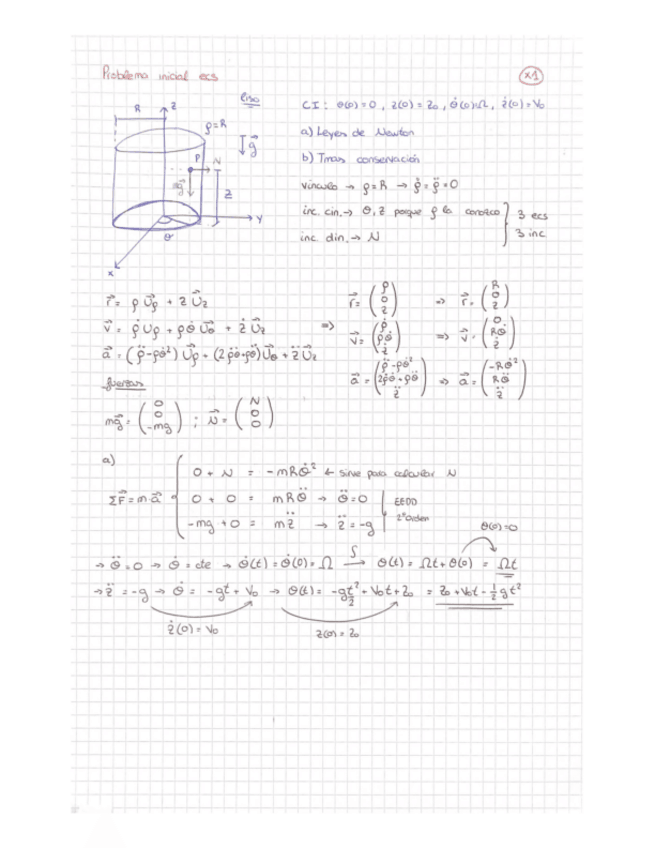 Problema inicial ecs
x1
liso
R
z
ρ=R
g⃗
P
N
mg⃗
z
y
θ
x
CI: θ(0)=0, z(0)=z₀, θ̇(0)=Ω, ż(0)=V₀
a) Leyes de Newton
b) Tmas conservación
vínculo → ρ=R → ρ̇=ρ̈=0
inc. cin. → θ, z porque ρ la conozco
inc. din. → N
3 ecs
3 inc
r⃗ = ρ U⃗ρ + z U⃗z
v⃗ = ρ̇ U⃗ρ + ρθ̇ U⃗θ + ż U⃗z
a⃗ = (ρ̈-ρθ̇²) U⃗ρ + (2ρ̇θ̇+ρθ̈) U⃗θ + z̈ U⃗z
⇒
r⃗ = (ρ 0 z) ⇒ r⃗ = (R 0 z)
v⃗ = (ρ̇ ρθ̇ ż) ⇒ v⃗ = (0 Rθ̇ ż)
a⃗ = (ρ̈-ρθ̇² 2ρ̇θ̇+ρθ̈ z̈) ⇒ a⃗ = (-Rθ̇² Rθ̈ z̈)
fuerzas
mg⃗ = (0 0 -mg) ; N⃗ = (N 0 0)
a)
ΣF⃗=m a⃗
0 + N = -mRθ̇² ← sirve para calcular N
0 + 0 = mRθ̈ → θ̈=0
-mg + 0 = mz̈ → z̈=-g
EEDD
2º Orden
θ(0)=0
→ θ̈=0 → θ̇=cte → θ̇(t)=θ̇(0)=Ω ∫→ θ(t)=Ωt+θ(0) = Ωt
→ z̈ = -g → θ̇ = -gt + V₀ → θ(t) = -gt²/2 + V₀t + z₀ = z₀ + V₀t - ½gt²
ż(0) = V₀
z(0) = z₀